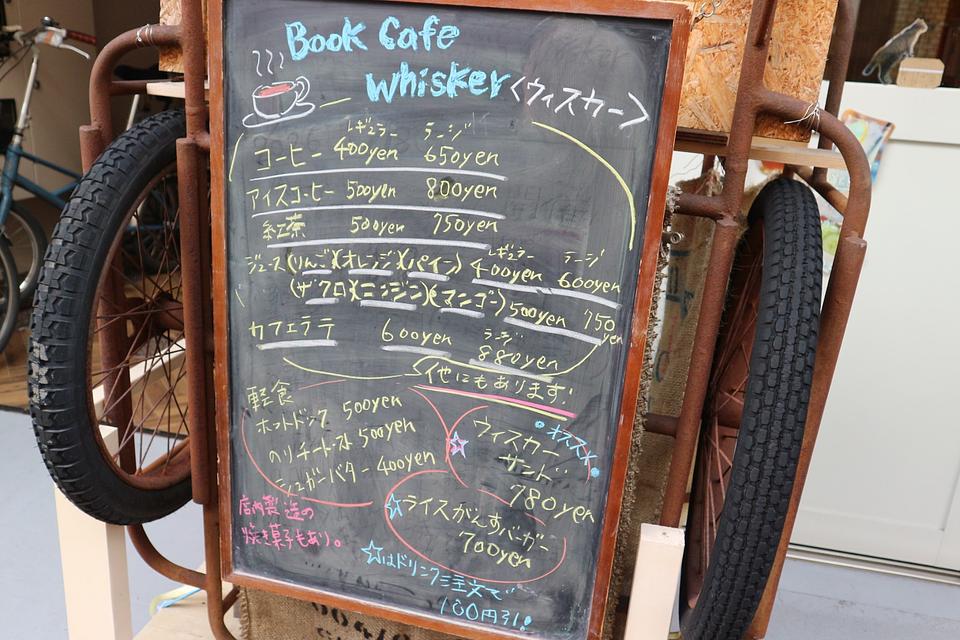 Book Cafe
Whisker <ウィスカー>
レギュラー ラージ
コーヒー 400yen 650yen
アイスコーヒー 500yen 800yen
紅茶 500yen 750yen
レギュラー ラージ
ジュース(りんご)(オレンジ)(パイン) 400yen 600yen
(ザクロ)(ニンジン)(マンゴー) 500yen 750yen
カフェラテ 600yen ラージ 880yen
他にもあります!
軽食
ホットドック 500yen
のりチートースト 500yen
シュガーバター 400yen
オススメ
ウィスカー
サンド
780yen
☆ライスがんすバーガー
700yen
店内製造の
焼き菓子もあり。
☆はドリンク注文で
100円引!